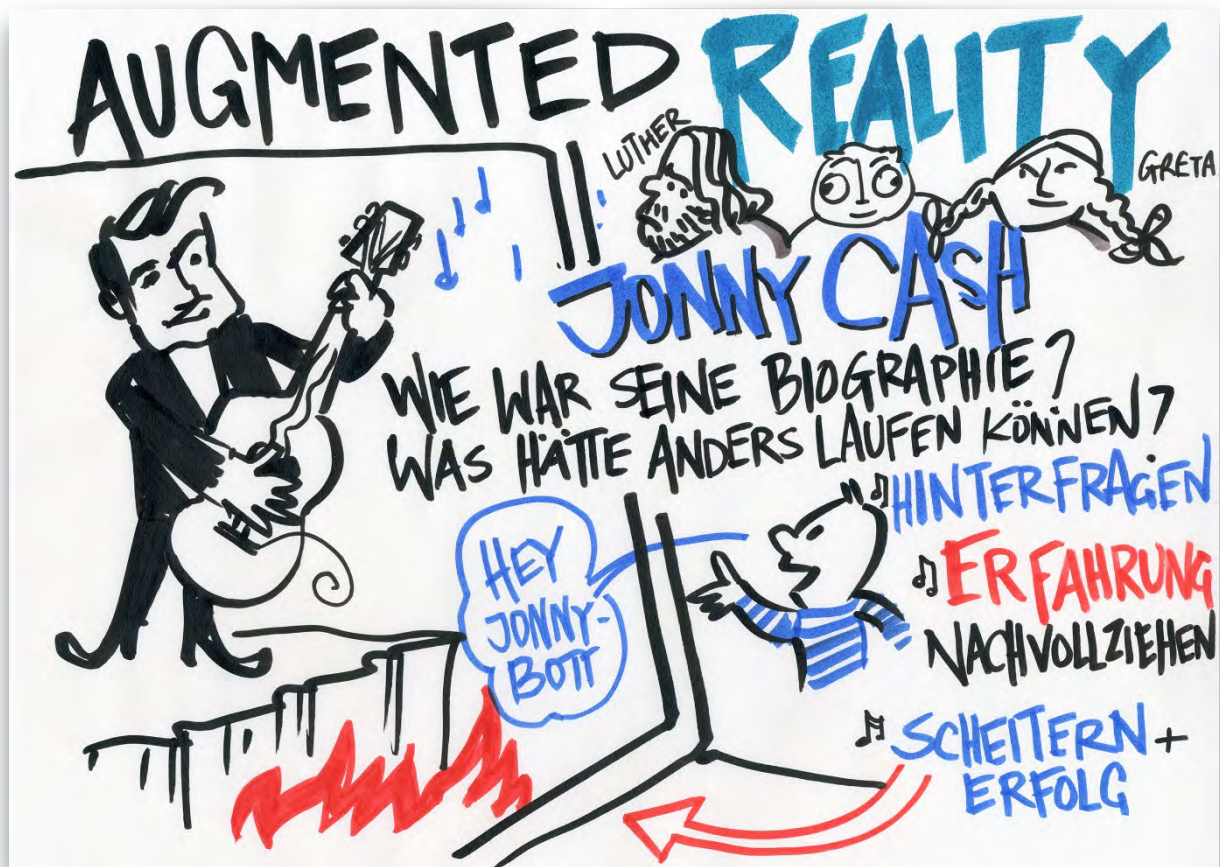 AUGMENTED REALITY
LUTHER
GRETA
JONNY CASH
WIE WAR SEINE BIOGRAPHIE?
WAS HÄTTE ANDERS LAUFEN KÖNNEN?
HINTERFRAGEN
ERFAHRUNG
NACHVOLLZIEHEN
HEY
JONNY-
BOTT
SCHEITERN +
ERFOLG